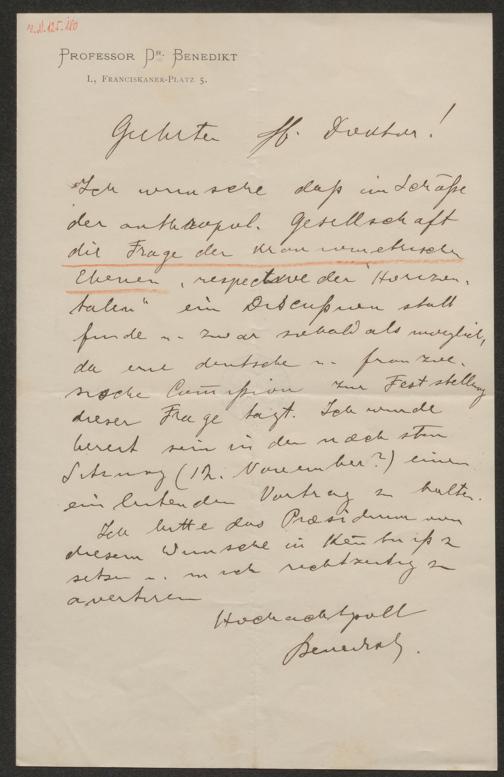 Professor Dr. Benedikt
I., Franciskaner-Platz 5.
Geehrter H. Doktor!
Ich wünsche daß im Schoße
der anthropol. Gesellschaft
die Frage der kraniometrischen
Ebenen, respective der "Horizon-
talen" ein Discussion statt
finde u. zwar sobald als moeglich,
da eine deutsche u. franzoe-
sische Comission zur Feststellung
dieser Frage tagt. Ich wuerde
bereit sein in der naechsten
Sitzung (12. November?) einen
einleitenden Vortrag zu halten.
Ich bitte das Praesidium von
diesem Wunsche in Kenntniß z
setzen u. mich rechtzeitig zu
avertiren
Hochachtvoll
Benedikt.